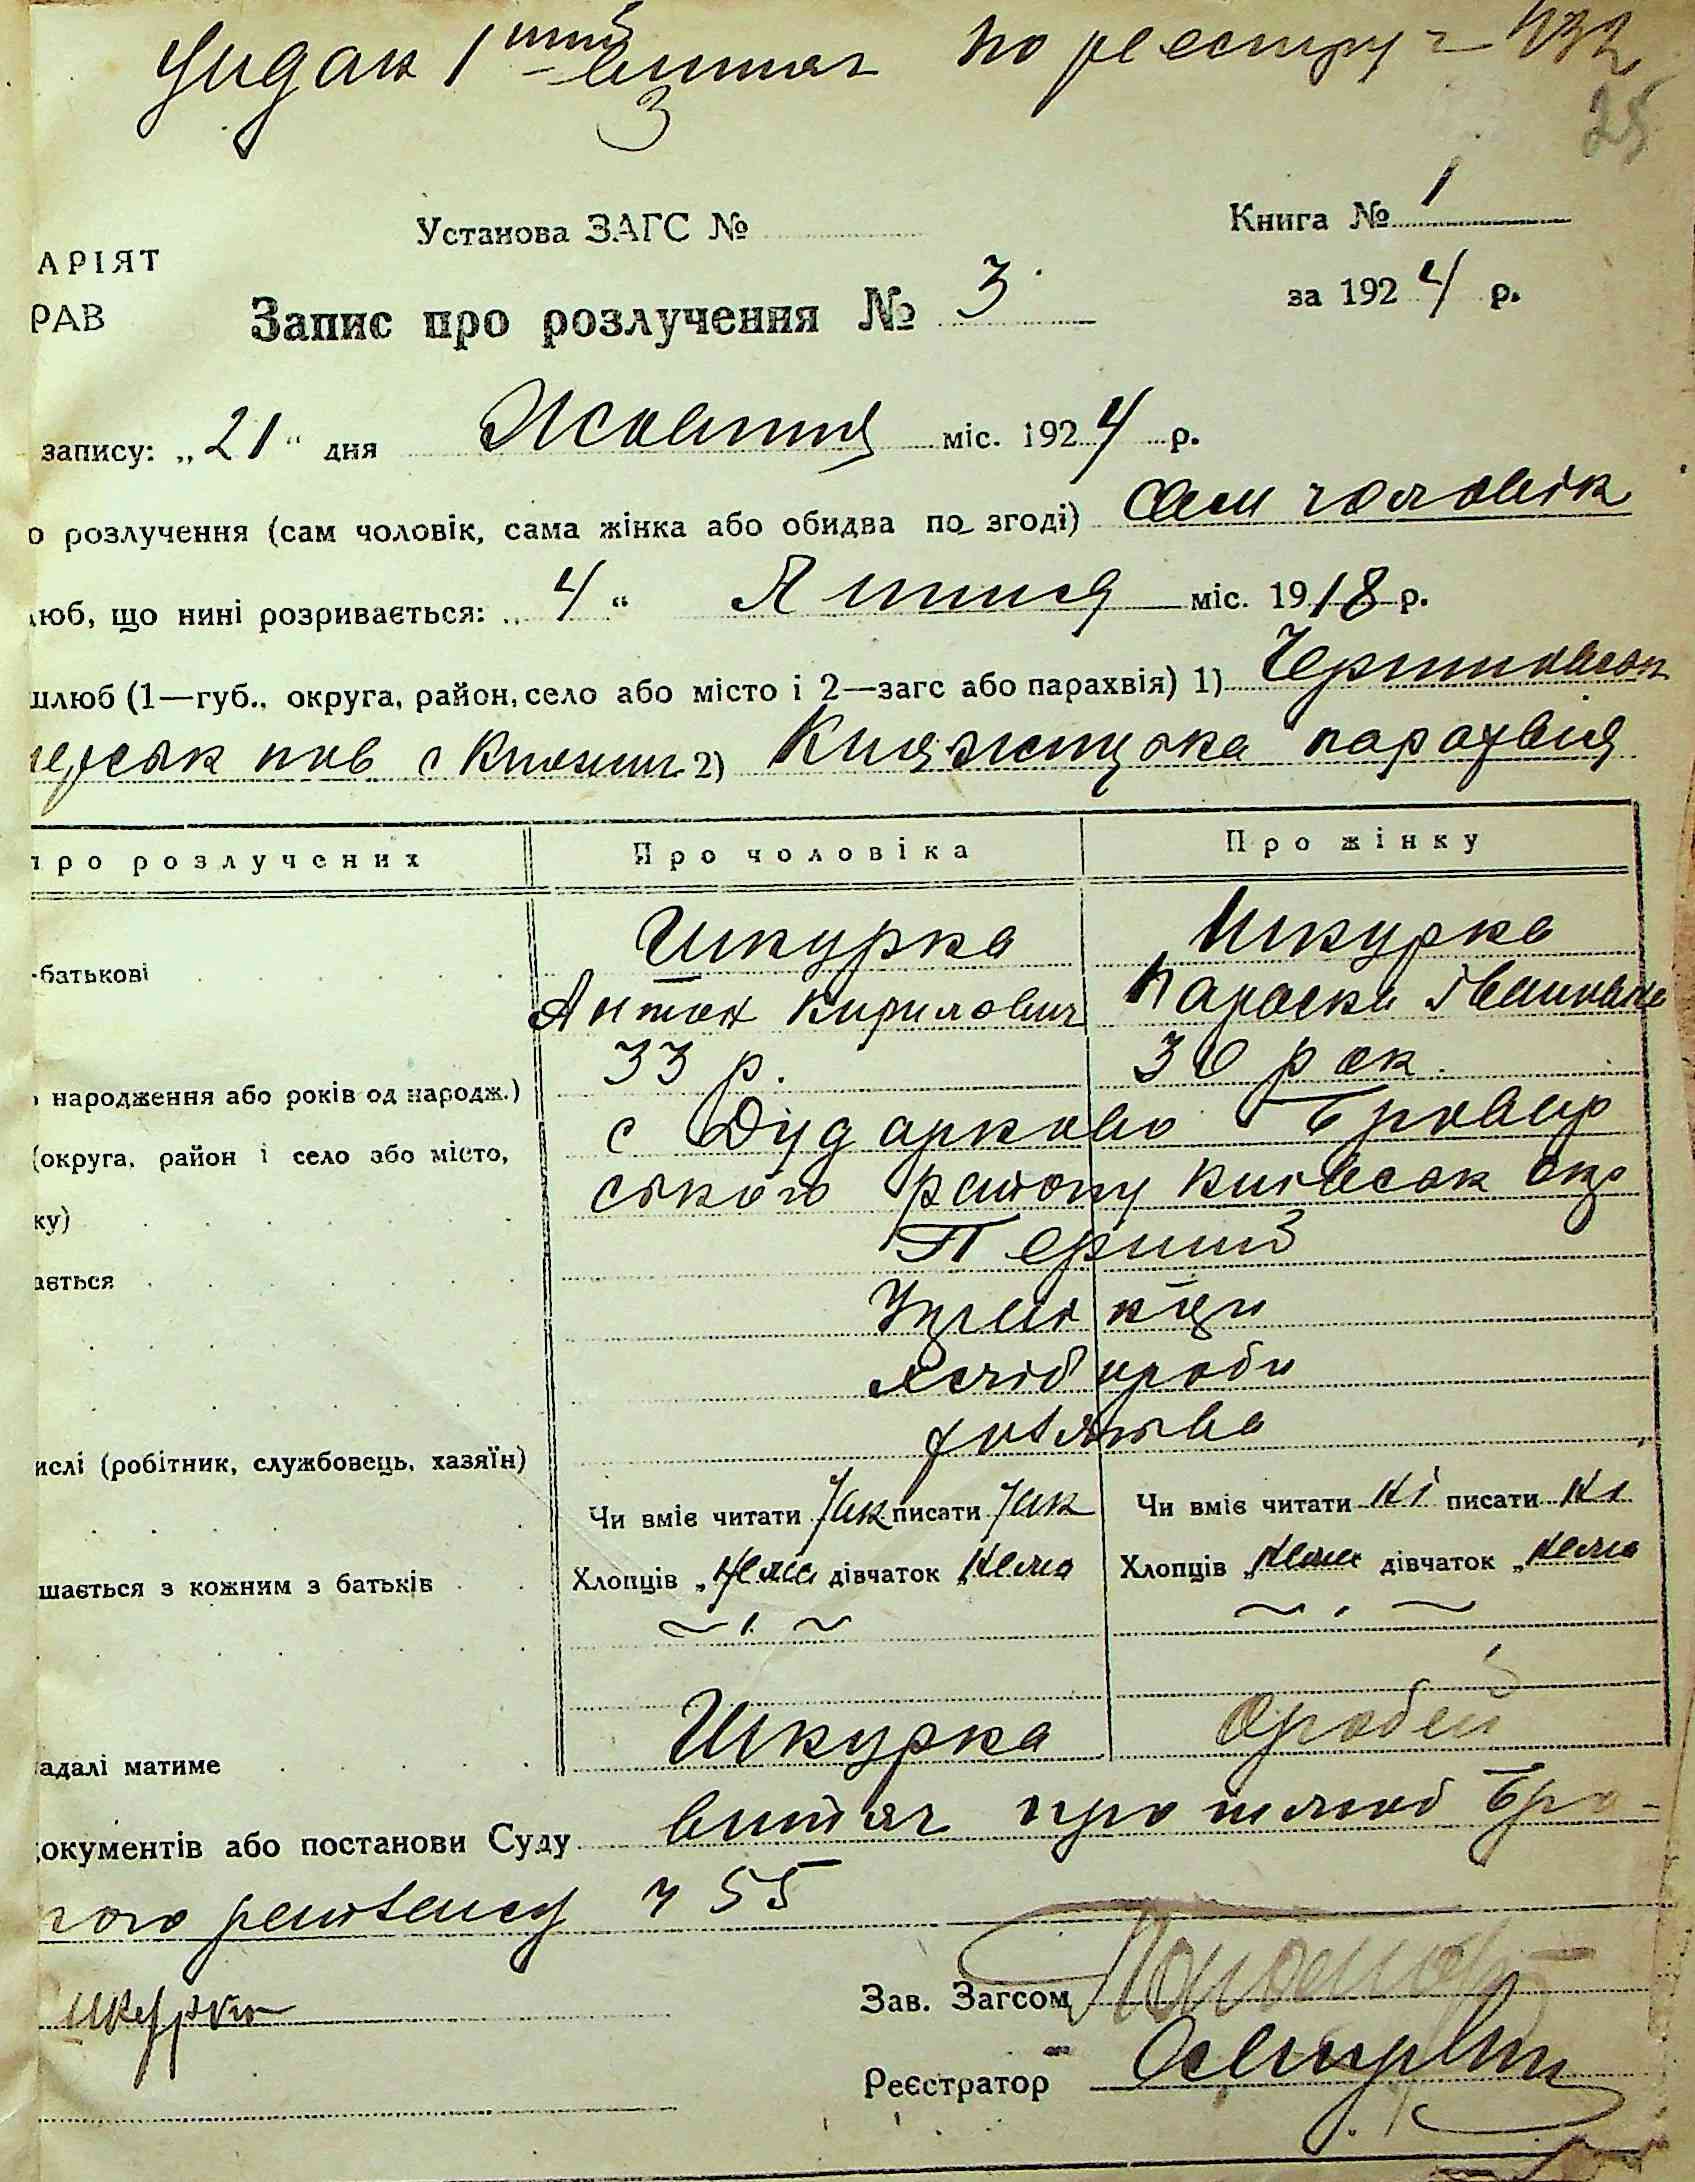 по реестру = 432
3
25
Установа ЗАГС №
Книга № 1
АРІЯТ
РАВ
Запис про розлучення № 3
за 1924 р.
запису: „21“ дня Жовтня міс. 1924 р.
о розлучення (сам чоловік, сама жінка або обидва по згоді) Сам чоловік
люб, що нині розривається: „4“ Липня міс. 1918 р.
шлюб (1—губ., округа, район, село або місто і 2—загс або парахвія) 1)
пов с 2) парахвія
про розлучених
Про чоловіка
Про жінку
Шкурка
Шкурка
-батькові
Антон Кирилович
Параска Івановна
33 р.
30 рок.
народження або років од народж.)
с Дударково Бровар
(округа, район і село або місто,
ського району Київськ окр
ку)
Перший
ається
Українці
хлібороби
ислі (робітник, службовець, хазяїн)
Чи вміє читати так писати так
Чи вміє читати ні писати ні
шається з кожним з батьків
Хлопців „нема дівчаток „нема
Хлопців „нема дівчаток „нема
Шкурка
адалі матиме
окументів або постанови Суду витяг про шлюб Бро-
ч 55
Зав. Загсом
Реєстратор